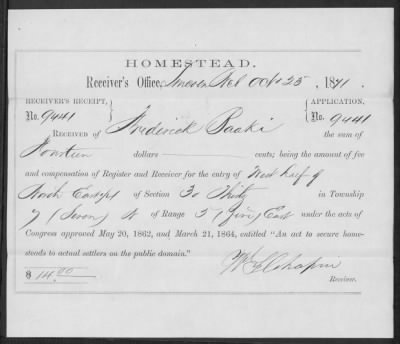 HOMESTEAD.
Receiver's Office, Lincoln Neb Oct 25, 1871.
RECEIVER'S RECEIPT, APPLICATION,
No. 9441 No. 9441
RECEIVED OF Frederick the sum of
Fourteen dollars cents; being the amount of fee
and compensation of Register and Receiver for the entry of West half of
North East qr of Section 30 Thirty in Township
7 (Seven) N of Range 5 (Five) East under the acts of
Congress approved May 20, 1862, and March 21, 1864, entitled "An act to secure home-
steads to actual settlers on the public domain."
$ 14.00 Chapin
Receiver.